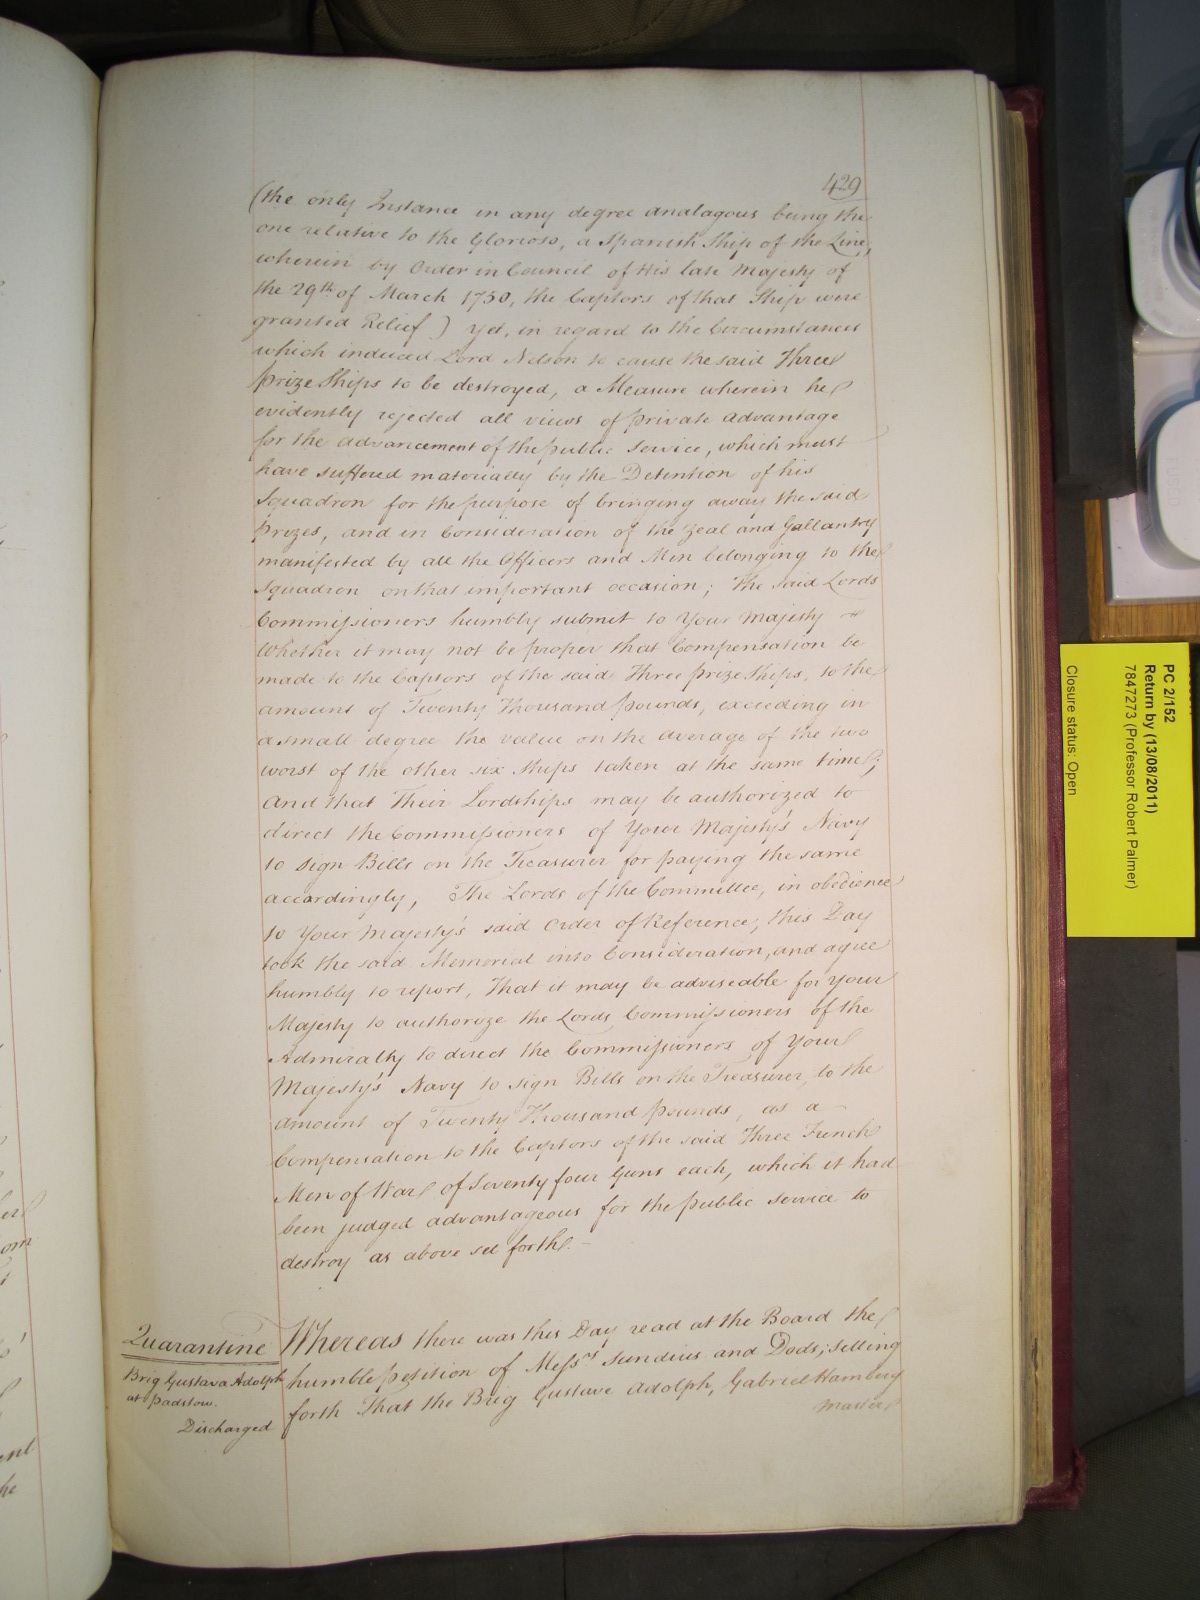 429
(the only Instance in any degree analagous being the
one relative to the Glorioso, a Spanish Ship of the Line,
wherein by Order in Council of His late Majesty of
the 29th of March 1750, the Captors of that Ship were
granted Relief) yet, in regard to the Circumstances
which induced Lord Nelson to cause the said Three
prize Ships to be destroyed, a Measure wherein he
evidently rejected all views of private advantage
for the advancement of the public Service, which must
have suffered materially by the Detention of his
Squadron for the purpose of bringing away the said
prizes, and in Consideration of the Zeal and Gallantry
manifested by all the Officers and Men belonging to the
Squadron on that important occasion; the said Lords
Commissioners humbly submit to Your Majesty
Whether it may not be proper that Compensation be
made to the Captors of the said Three prize Ships, to the
amount of Twenty Thousand pounds, exceeding in
a small degree the value on the average of the two
worst of the other six Ships taken at the same time;
and that Their Lordships may be authorized to
direct the Commissioners of Your Majesty's Navy
to sign Bills on the Treasurer for paying the same
accordingly, The Lords of the Committee, in obedience
to Your Majesty's said Order of Reference, this Day
took the said Memorial into Consideration, and agree
humbly to report, That it may be adviseable for Your
Majesty to authorize the Lords Commissioners of the
Admiralty to direct the Commissioners of Your
Majesty's Navy to sign Bills on the Treasurer, to the
amount of Twenty Thousand pounds, as a
Compensation to the Captors of the said Three French
Men of War of Seventy four Guns each, which it had
been judged advantageous for the public service to
destroy as above set forth.
Quarantine
Brig Gustava Adolph
at Padstow.
Discharged
Whereas there was this Day read at the Board the
humble petition of Messrs Sundius and Dods; setting
forth That the Brig Gustave Adolph, Gabriel Hamberg
Master
PC 2/152
Return by (13/08/2011)
7847273 (Professor Robert Palmer)
Closure status: Open